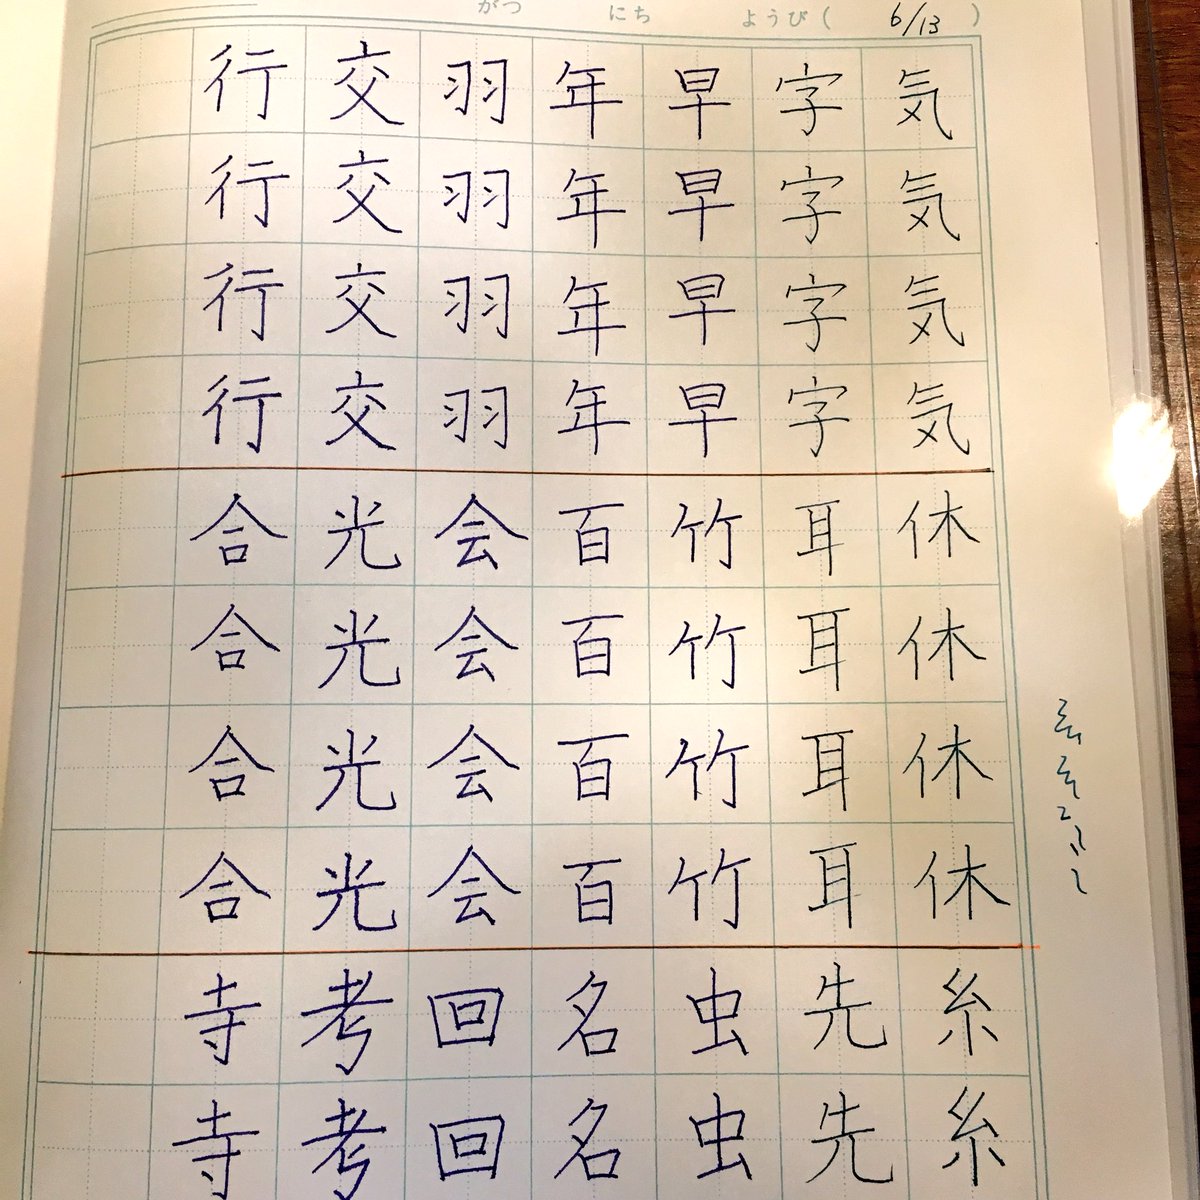 がつ にち ようび( 6/13 )
気気気気休休休休糸糸
字字字字耳耳耳耳先先
早早早早竹竹竹竹虫虫
年年年年百百百百名名
羽羽羽羽会会会会回回
交交交交光光光光考考
行行行行合合合合寺寺